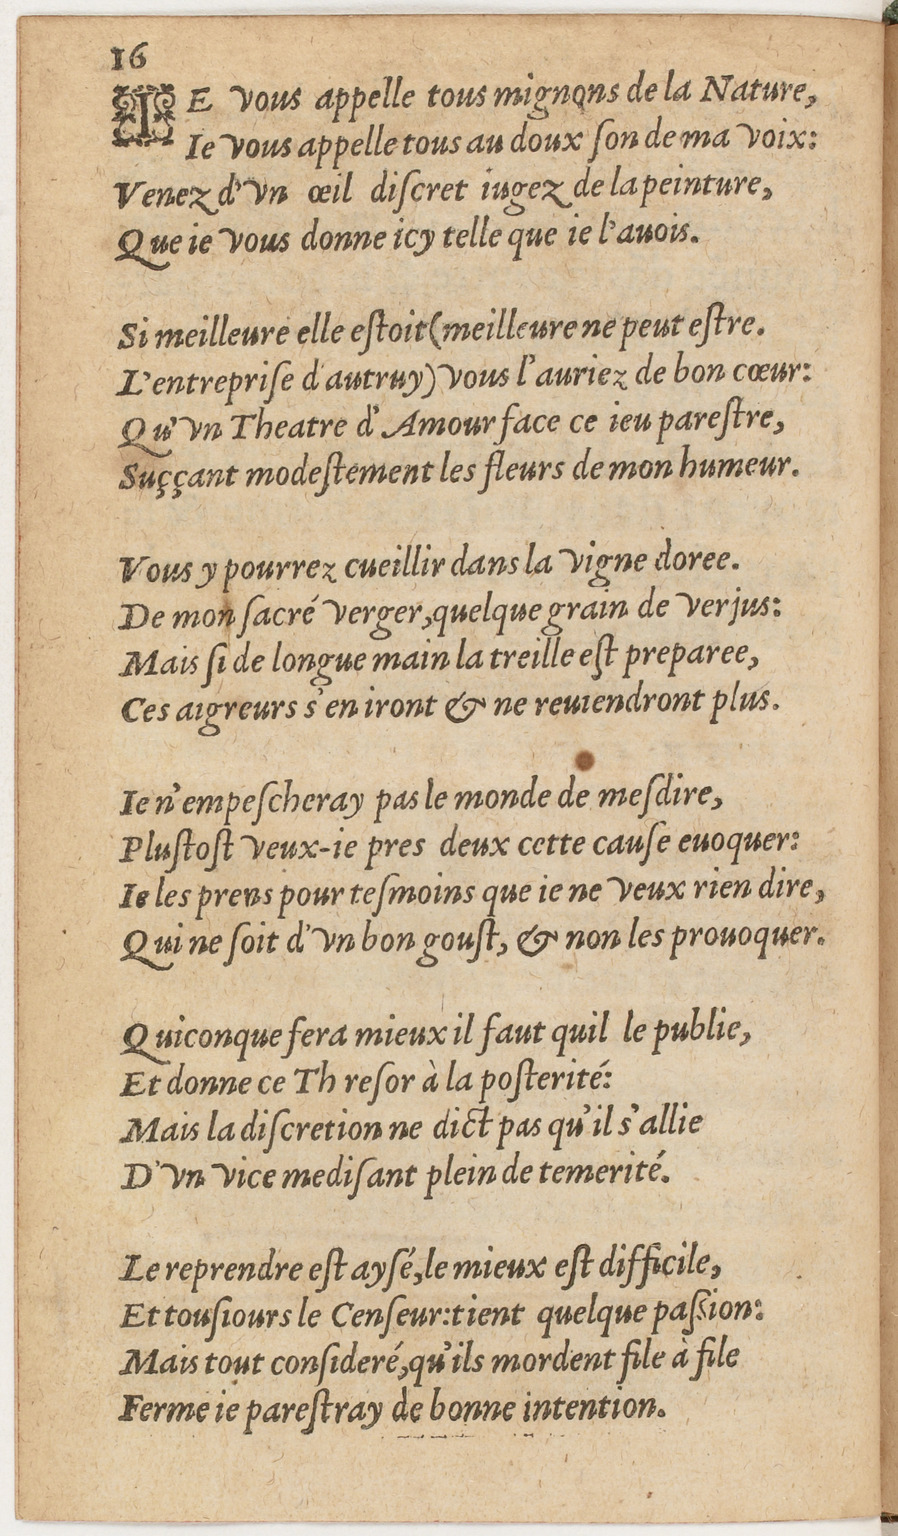 16
IE vous appelle tous mignons de la Nature,
Ie vous appelle tous au doux ſon de ma voix:
Venez d'vn œil diſcret iugez de la peinture,
Que ie vous donne icy telle que ie l'auois.
Si meilleure elle eſtoit (meilleure ne peut eſtre.
L'entrepriſe d'autruy) vous l'auriez de bon cœur:
Qu'vn Theatre d'Amour face ce ieu pareſtre,
Suççant modeſtement les fleurs de mon humeur.
Vous y pourrez cueillir dans la vigne doree.
De mon ſacré verger, quelque grain de verjus:
Mais ſi de longue main la treille eſt preparee,
Ces aigreurs s'en iront & ne reuiendront plus.
Ie n'empeſcheray pas le monde de meſdire,
Pluſtoſt veux-ie pres deux cette cauſe euoquer:
Ie les prens pour teſmoins que ie ne veux rien dire,
Qui ne ſoit d'vn bon gouſt, & non les prouoquer.
Quiconque fera mieux il faut quil le publie,
Et donne ce Threſor à la poſterité:
Mais la diſcretion ne dict pas qu'il s'allie
D'vn vice mediſant plein de temerité.
Le reprendre eſt ayſé, le mieux eſt difficile,
Et touſiours le Cenſeur: tient quelque paſsion:
Mais tout conſideré, qu'ils mordent file à file
Ferme ie pareſtray de bonne intention.